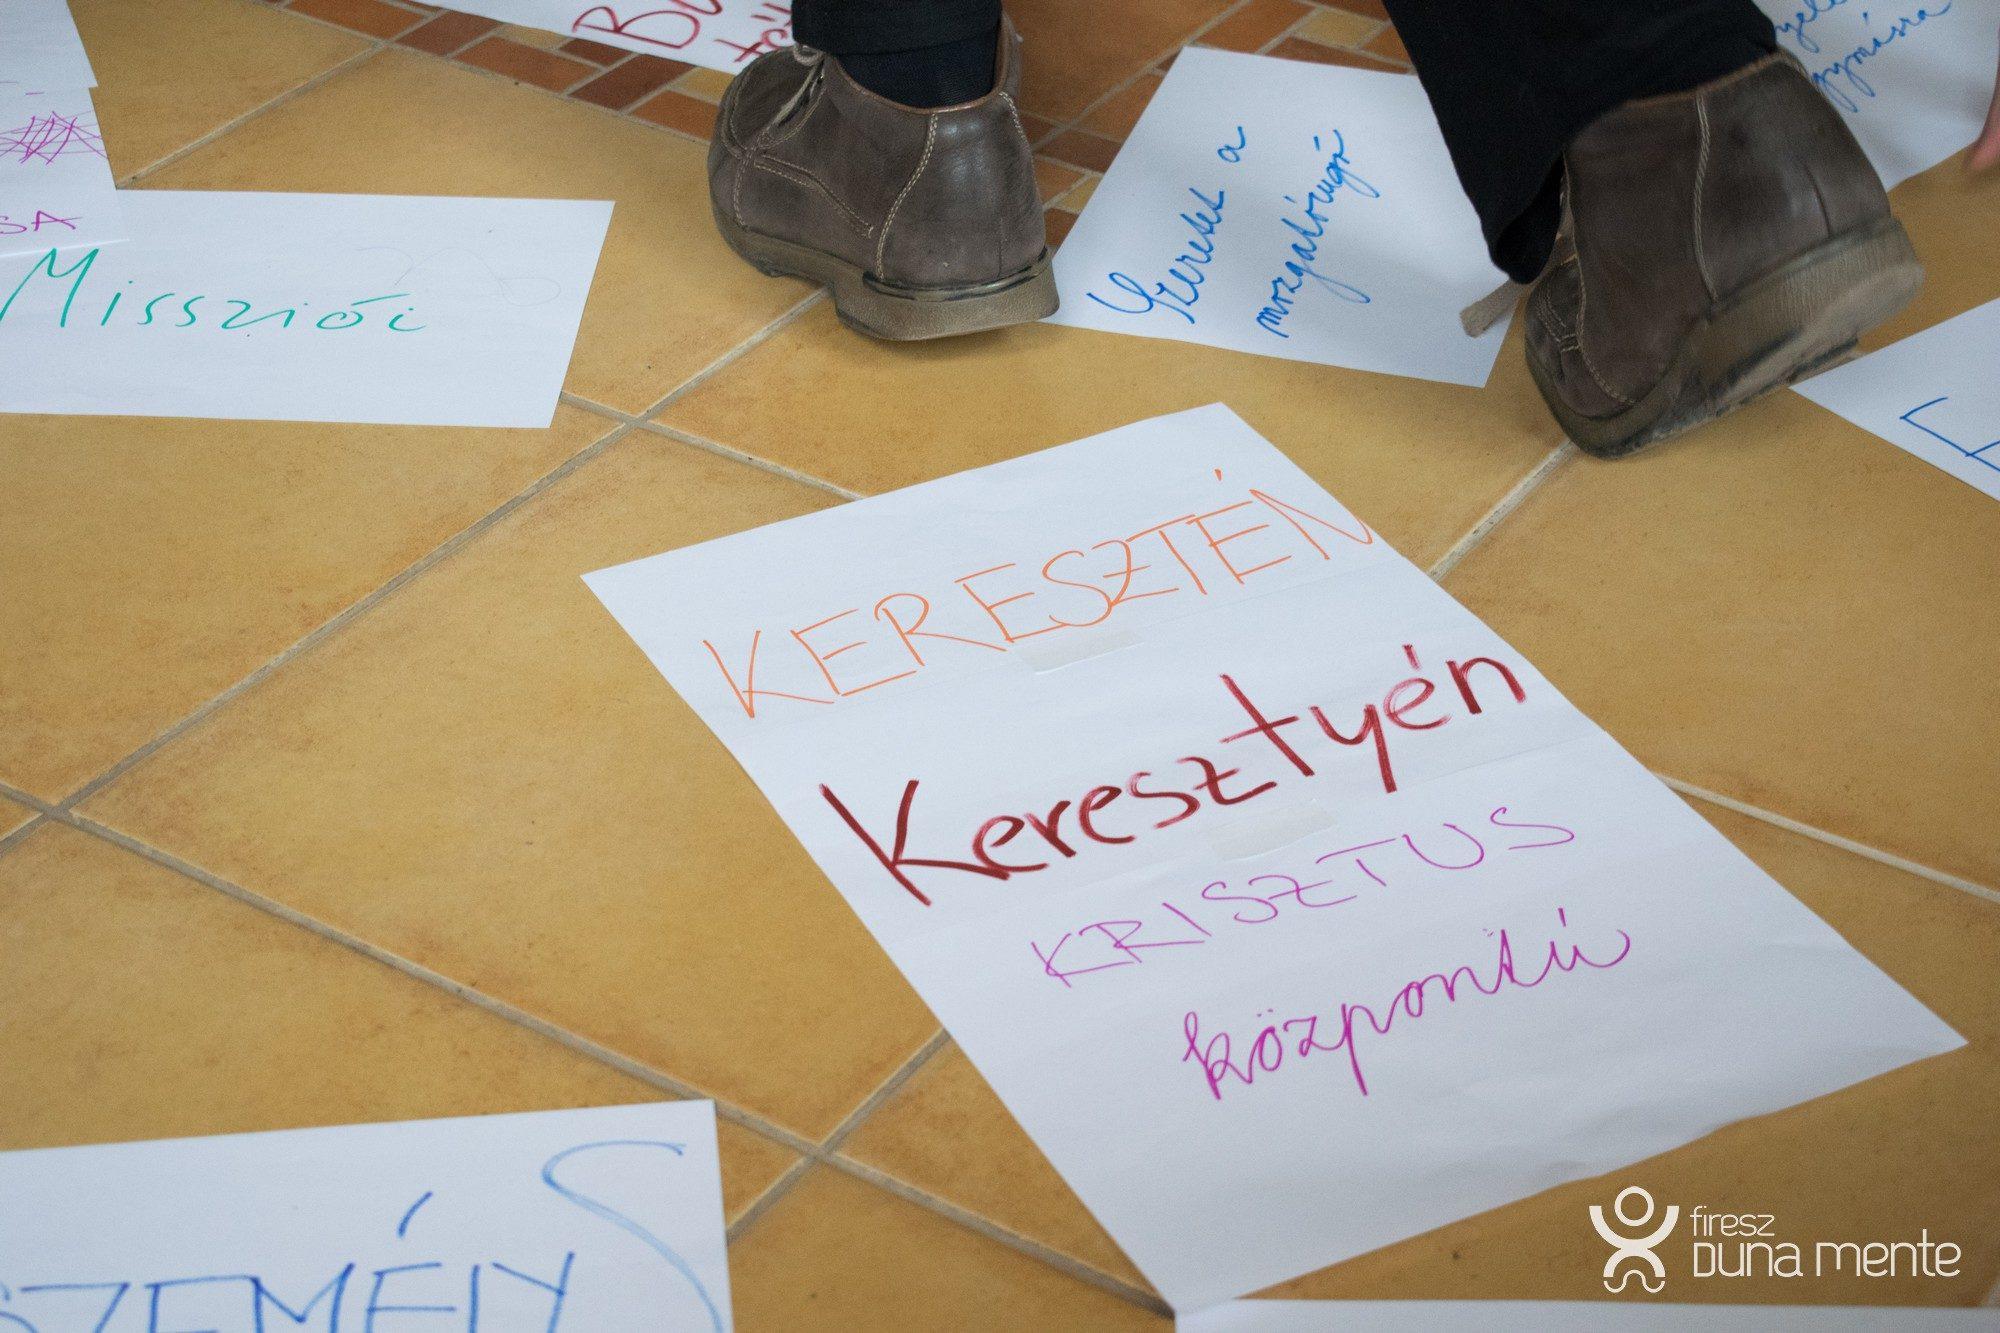 SA
Missziói
Szeretet a
mozgatórugó
KERESZTÉN
Keresztyén
KRISZTUS
központú
SZEMÉLY
firesz
DUNA MENTE